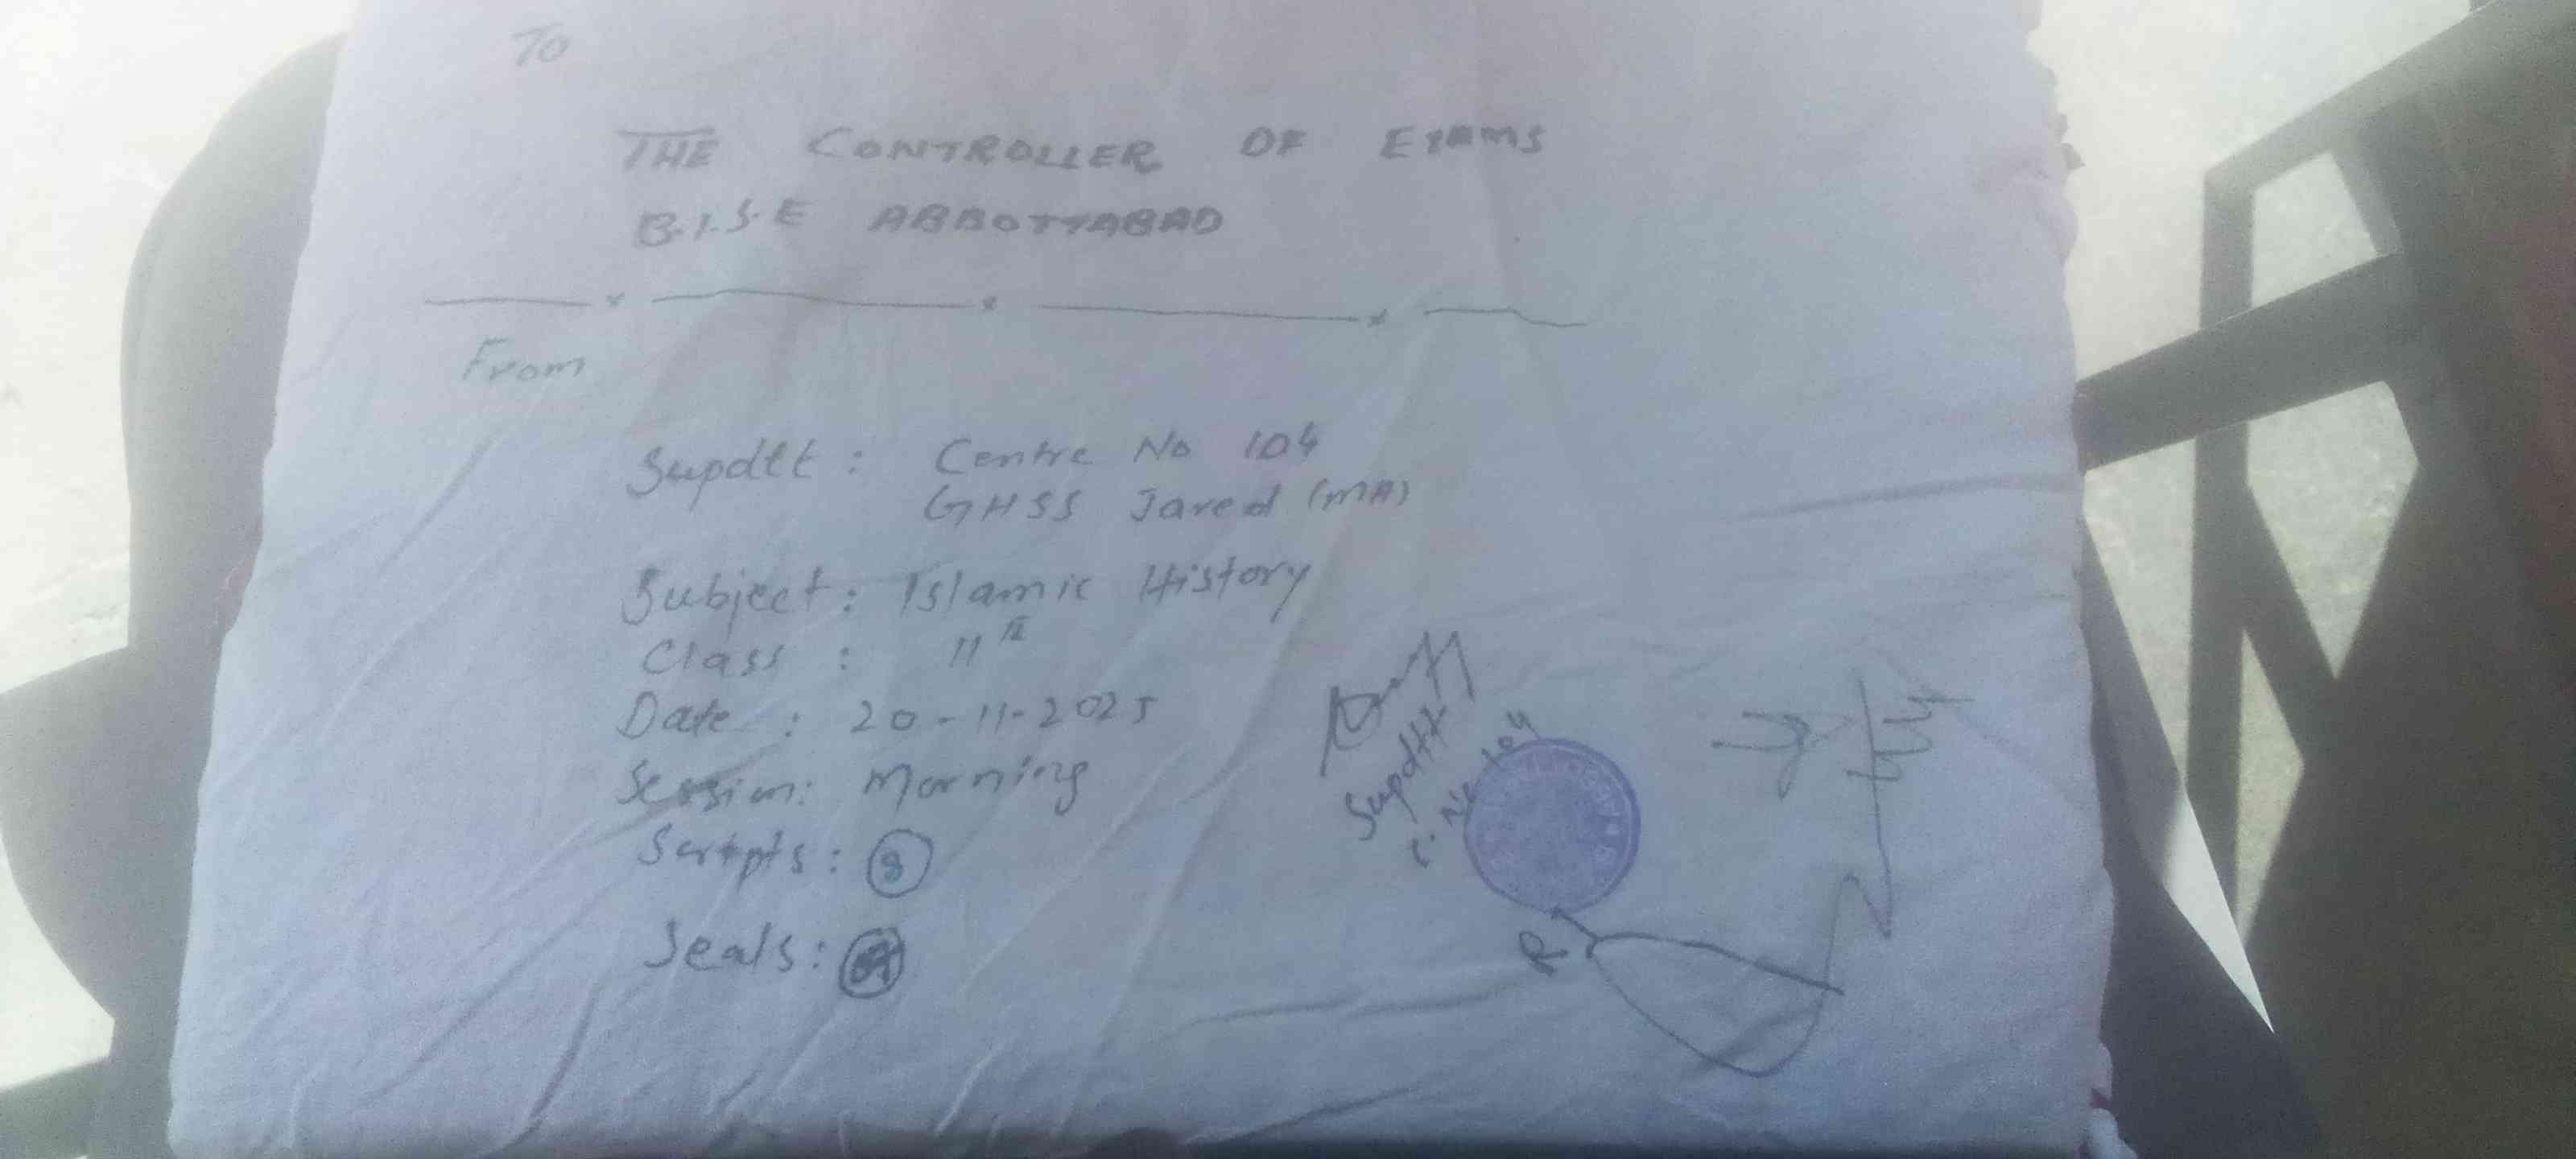 To
THE CONTROLLER OF EXAMS
B.I.S.E ABBOTTABAD
From
Supdtt : Centre No 104
GHSS Jared (MA)
Subject : Islamic History
Class : 11
Date : 20-11-2025
Session: Morning
Scripts: 8
Seals:
Supdtt
C. No 104